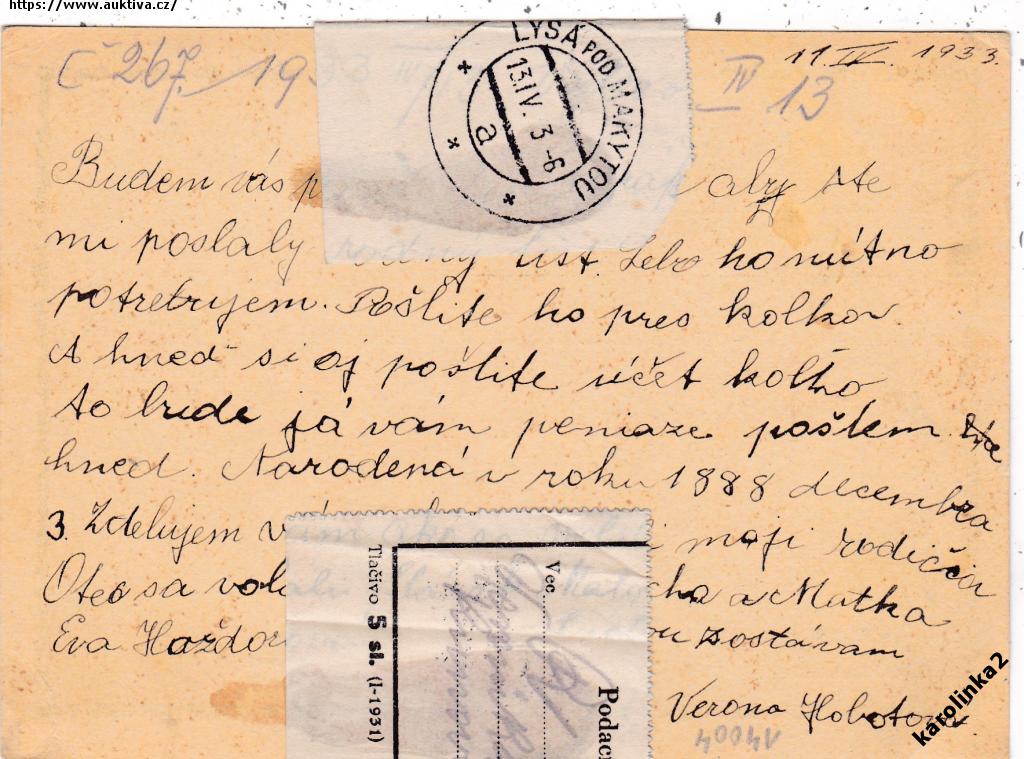 https://www.auktiva.cz/
Č 267/19
IV 13
11 IV. 1933.
LYSÁ POD MAKYTOU
13.IV. 3 -6
a
Budem vás aby ste
mi poslaly rodný list. Lebo ho nútno
potrebujem. Pošlite ho pres kolkov
A hneď si aj pošlite účet kolko
to bude já vám peniaze pošlem
hneď. Narodená v roku 1888 decembra
3. Zdelujem vám ako sa moji rodičia
Otec sa volal a Matka
Eva zostávam
Verona Hobotova
Tlačivo 5 sl. (I-1931)
Vec
Podac
14004
karolinka2